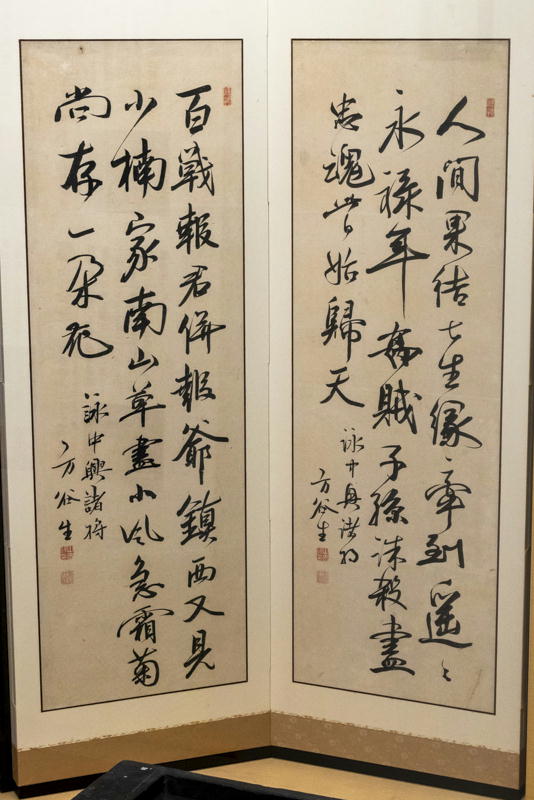 人間果結七生縁牽到遥々
永禄年高賊子孫誅殺盡
忠魂此日始歸天
詠中興諸将
方谷生
百戰報君併報爺鎮西又見
小楠家南山草盡北風急霜菊
尚存一朶花
詠中興諸将
方谷生